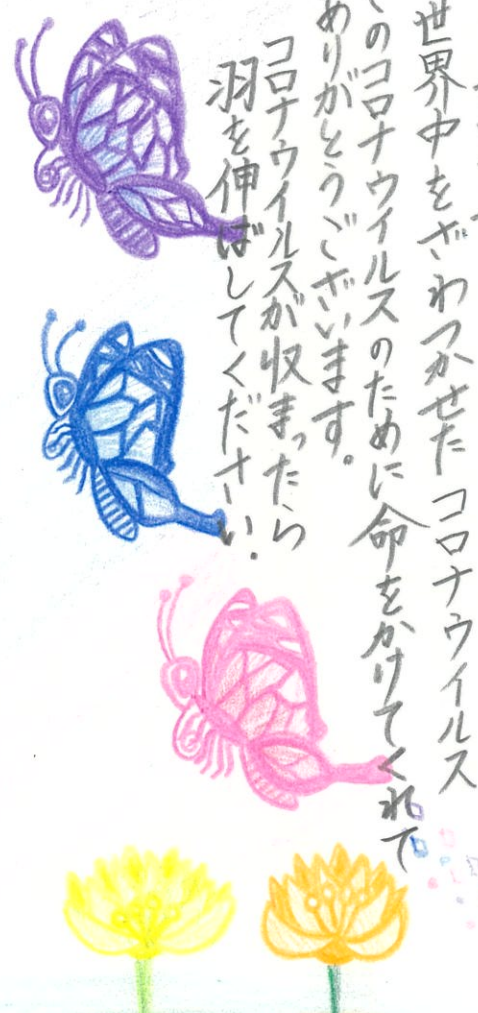 世界中をざわつかせたコロナウイルス
このコロナウイルスのために命をかけてくれて
ありがとうございます。
コロナウイルスが収まったら
羽を伸ばしてください.